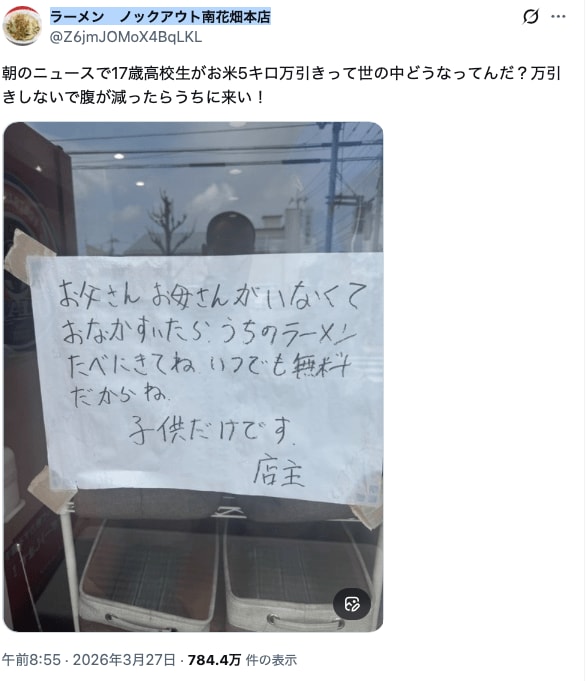 ラーメン　ノックアウト南花畑本店
@Z6jmJOMoX4BqLKL
朝のニュースで17歳高校生がお米5キロ万引きって世の中どうなってんだ？万引
きしないで腹が減ったらうちに来い！
お父さん お母さんがいなくて
おなかすいたら、うちのラーメン
たべにきてね いつでも無料
だからね、
子供だけです、
店主
午前8:55 · 2026年3月27日 · 784.4万 件の表示